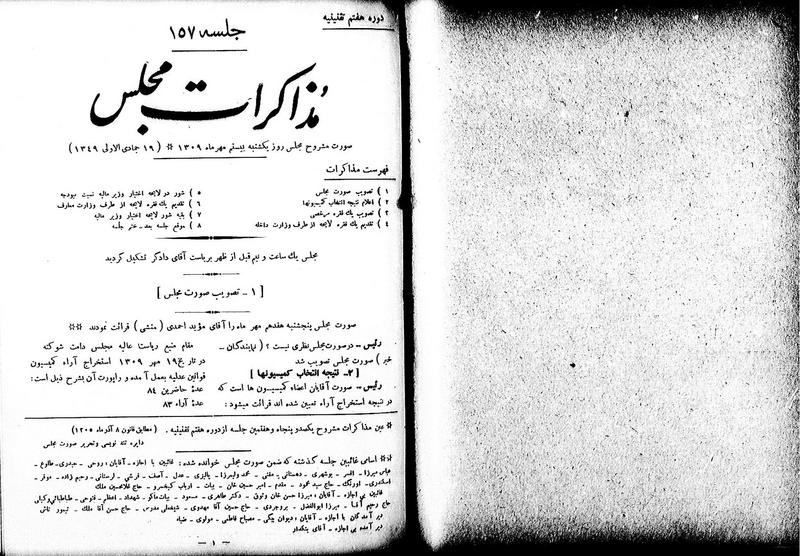 دوره هفتم تقنینیه
جلسه ۱۵۷
مذاکرات مجلس
صورت مشروح مجلس روز یکشنبه بیستم مهرماه ۱۳۰۹ * ( ۱۹ جمادی الاولی ۱۳۴۹ )
فهرست مذاکرات
۱ ) تصویب صورت مجلس
۲ ) اعلام نتیجه انتخاب کمیسیونها
۳ ) تصویب یك فقره مرخصی
۴ ) تقدیم یك فقره لایحه از طرف وزارت داخله
۵ ) شور در لایحه اختیار وزیر مالیه نسبت ببودجه
۶ ) تقدیم یك فقره لایحه از طرف وزارت معارف
۷ ) بقیه شور لایحه اختیار وزیر مالیه
۸ ) موقع جلسه بعد - ختم جلسه
مجلس یك ساعت و نیم قبل از ظهر بریاست آقای دادگر تشکیل گردید
[ ۱ - تصویب صورت مجلس ]
صورت مجلس پنجشنبه هفدهم مهر ماه را آقای مؤید احمدی ( منشی ) قرائت نمودند **
رئیس - در صورت مجلس نظری نیست ؟ ( نمایندگان -
خیر ) صورت مجلس تصویب شد
[ ۲ - نتیجه انتخاب کمیسیونها ]
رئیس - صورت آقایان اعضاء کمیسیون ها است که
در نتیجه استخراج آراء تعیین شده اند قرائت میشود :
مقام منیع ریاست عالیه مجلس دامت شوکته
در تاریخ ۱۹ مهر ۱۳۰۹ استخراج آراء کمیسیون
قوانین عدلیه بعمل آمده و راپورت آن بشرح ذیل است :
عدهٔ حاضرین ۸۴
عدهٔ آراء ۸۳
* عین مذاکرات مشروح یکصد و پنجاه و هفتمین جلسه از دوره هفتم تقنینیه . ( مطابق قانون ۸ آذرماه ۱۳۰۵ )
دایره تند نویسی و تحریر صورت مجلس
** اسامی غائبین جلسه گذشته که ضمن صورت مجلس خوانده شده : غائبین با اجازه - آقایان : روحی - حیدری - طالوع -
عباس میرزا - افسر - بوشهری - دهستانی - مفتی - محمد ولیمیرزا - پالیزی - عدل - آصف - قرشی - لرستانی - رحیم زاده - موقر -
اسکندری - اورنگ - حاج سید محمود - مقدم - امیر حسین خان - بیات - ارباب کیخسرو - حاج غلامحسین ملك
غائبین بی اجازه - آقایان : میرزا حسن خان وثوق - دکتر طاهری - مسعود - بیات ماکو - شهداد - اعظم - فتوحی - طباطبائی وکیلی
حاج رحیم آقا - میرزا ابوالفضل - بروجردی - حاج حسین آقا مهدوی - شیخعلی مدرس - حاج حسن آقا ملك - تیمور تاش
دیر آمدگان با اجازه - آقایان : دیوان بیگی - مصباح فاطمی - مولوی - ضیاء
دیر آمده بی اجازه - آقای بنکدار
- ۱ -